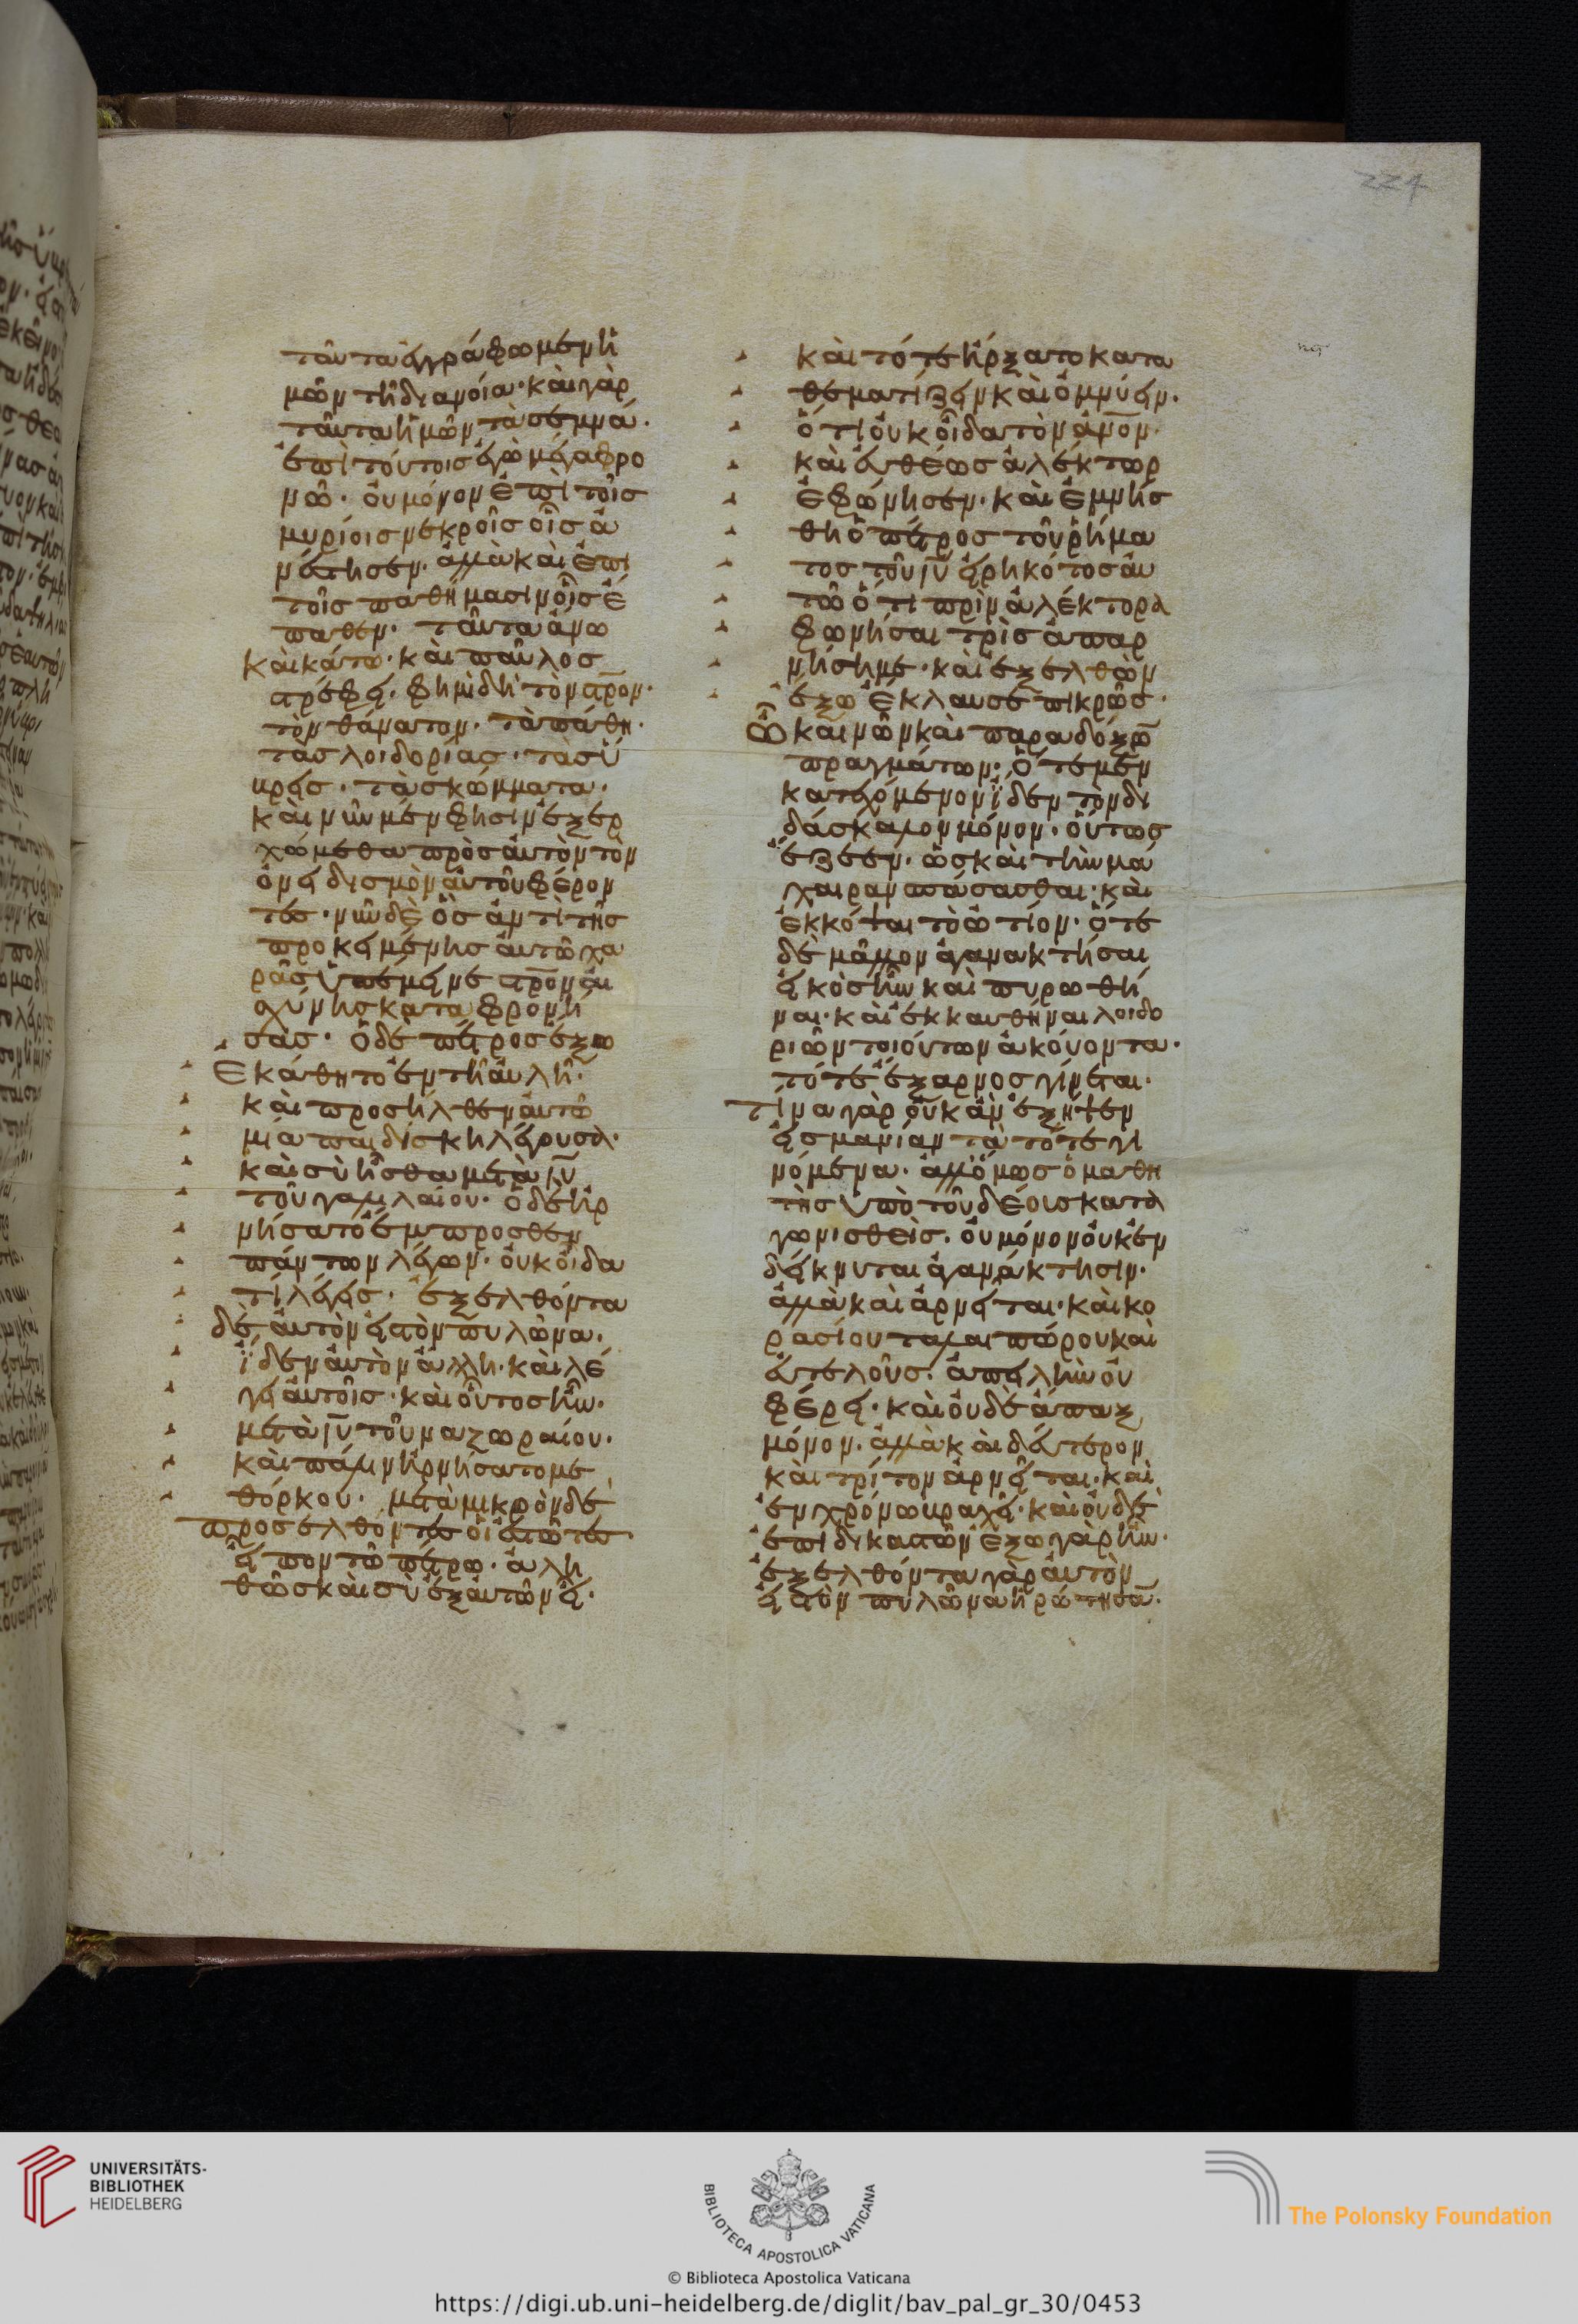 224
ταῦτα ἐγγράφωμεν ἡ
μῶν τῆ διανοία· καὶ γὰρ
ταῦτα ἡμῶν τὰ σεμνά·
ἐπὶ τούτοις ἐγὼ μέγα φρο
νῶ· οὐ μόνον ἐπὶ τοῖς
μυρίοις νεκροῖς οἷς ἀ
νέστησεν· ἀλλὰ καὶ ἐπὶ
τοῖς παθήμασιν οἷς ἔ
παθεν· ταῦτα ἄνω
καὶ κάτω· καὶ παῦλος
στρέφει· φημὶ δὴ τὸν στρον·
τὸν θάνατον· τὰ πάθη·
τὰς λοιδορίας· τὰς ὕ
βρεις· τὰ σκώμματα·
καὶ νῦν μέν φησιν ἐξερ
χώμεθα πρὸς αὐτὸν τὸν
ὀνειδισμὸν αὐτοῦ φέρον
τες· νῦν δὲ ὃς ἀντὶ τῆς
προκειμένης αὐτῶ χα
ρᾶς ὑπέμεινε στρον αἰ
σχύνης καταφρονή
σας· ὁ δὲ πέτρος ἔξω
ἐκάθητο ἐν τῆ αὐλῆ·
καὶ προσῆλθεν αὐτῶ
μία παιδίσκη λέγουσα·
καὶ σὺ ἦσθα μετὰ ιυ
τοῦ γαλιλαίου· ὁ δὲ ἠρ
νήσατο ἔμπροσθεν
πάντων λέγων· οὐκ οἶδα
τί λέγεις· ἐξελθόντα
δὲ αὐτὸν εἰς τὸν πυλῶνα·
ἴδεν αὐτὸν ἄλλη· καὶ λέ
γει αὐτοῖς· καὶ οὗτος ἦν·
μετὰ ιυ τοῦ ναζωραίου·
καὶ πάλιν ἠρνήσατο με
θόρκου· μετὰ μικρὸν δὲ
προσελθόντες οἱ ἑστῶτες
εἶπον τῶ πέτρω· ἀλη
θῶς καὶ σὺ ἐξ αὐτῶν εἶ·
καὶ τότε ἤρξατο κατα
θεματίζειν καὶ ὀμνύειν·
ὅτι οὐκ οἶδα τὸν ανον·
καὶ εὐθέως ἀλέκτωρ
ἐφώνησεν· καὶ ἐμνήσ
θη ὁ πέτρος τοῦ ῥήμα
τος τοῦ ιυ εἰρηκότος αὐ
τῶ ὅτι πρὶν ἀλέκτορα
φωνῆσαι τρὶς ἀπαρ
νήση με· καὶ ἐξελθὼν
ἔξω ἔκλαυσε πικρῶς·
ὢ καινῶν καὶ παραδόξω
πραγμάτων· ὅτε μὲν
κατεχόμενον ἴδεν τὸν δι
δάσκαλον μόνον· οὕτως
ἔζεσεν· ὡς καὶ τὴν μά
χαιραν σπάσασθαι· καὶ
ἐκκόψαι τὸ ὠτίον· ὅτε
δὲ μᾶλλον ἀγανακτῆσαι
εἰκὸς ἦν καὶ πυρωθῆ
ναι· καὶ ἐκκαυθῆναι λοιδο
ριῶν τοιούτων ἀκούοντα·
τότε ἔξαρνος γίνεται·
τίνα γὰρ οὐκ ἂν ἐξῆψεν
εἰς μανίαν τὰ τότε γι
νόμενα· ἀλλ' ὅμως ὁ μαθη
τὴς ὑπὸ τοῦ δέους κατα
γωνισθεὶς· οὐ μόνον οὐκ ἐν
δείκνυται ἀγανάκτησιν·
ἀλλὰ καὶ ἀρνεῖται· καὶ κο
ρασίου ταλαιπώρου καὶ
εὐτελοῦς· ἀπειλὴν οὐ
φέρει· καὶ οὐδὲ ἅπαξ
μόνον· ἀλλὰ καὶ δεύτερον
καὶ τρίτον ἀρνεῖται· καὶ
ἐν χρόνω βραχεῖ· καὶ οὐδὲ
ἐπὶ δικαστῶν ἔξω γὰρ ἦν·
ἐξελθόντα γὰρ αὐτὸν
εἰς τὸν πυλῶνα ἠρώτησα·
UNIVERSITÄTS-
BIBLIOTHEK
HEIDELBERG
BIBLIOTECA APOSTOLICA VATICANA
The Polonsky Foundation
© Biblioteca Apostolica Vaticana
https://digi.ub.uni-heidelberg.de/diglit/bav_pal_gr_30/0453